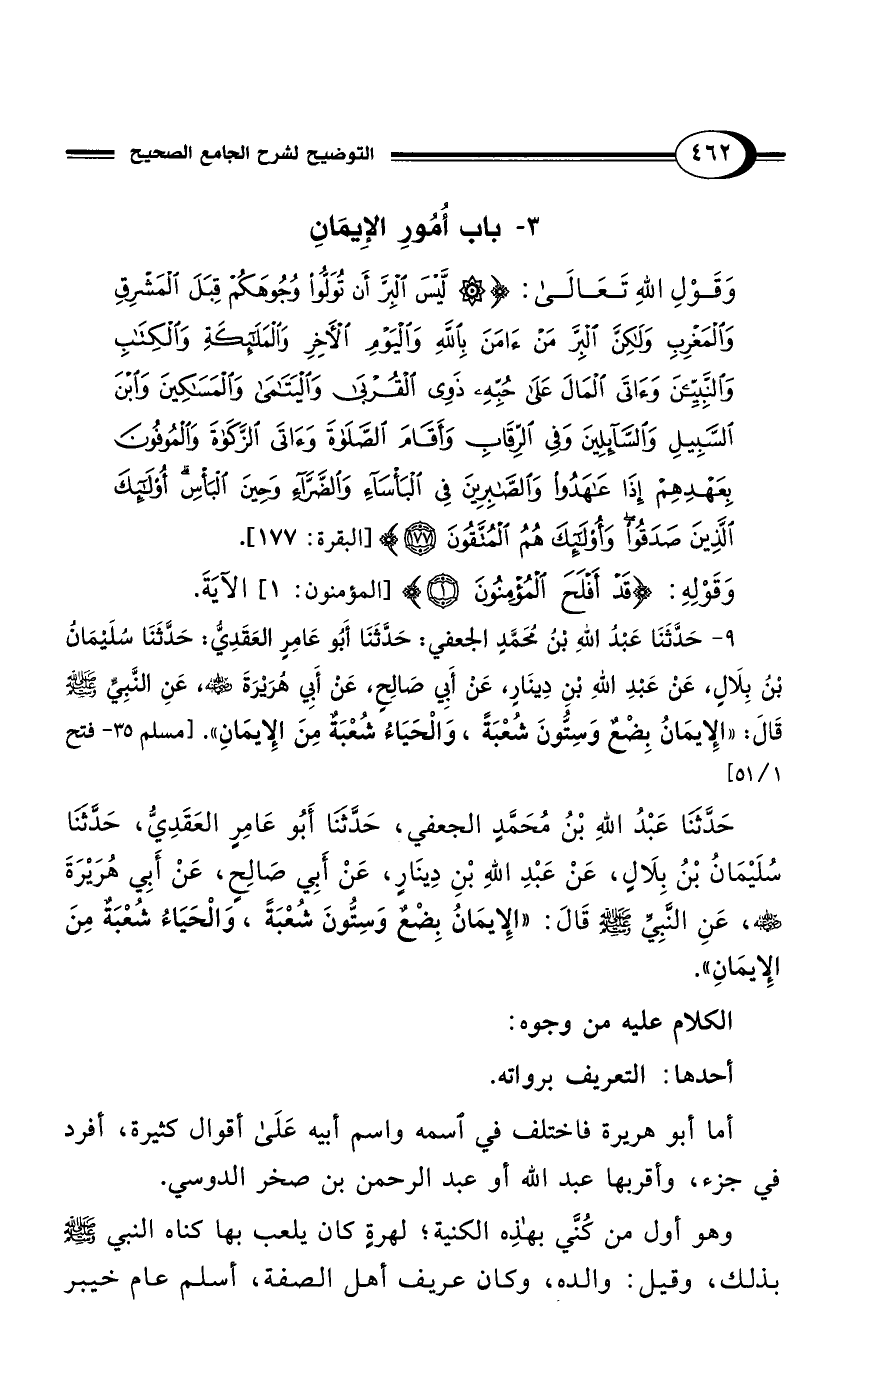 ٤٦٢ التوضيح لشرح الجامع الصحيح
٣- باب أُمُورِ الإِيمَانِ
وَقَوْلِ اللهِ تَعَالَىٰ: ﴿۞ لَّيْسَ ٱلْبِرَّ أَن تُوَلُّوا۟ وُجُوهَكُمْ قِبَلَ ٱلْمَشْرِقِ
وَٱلْمَغْرِبِ وَلَٰكِنَّ ٱلْبِرَّ مَنْ ءَامَنَ بِٱللَّهِ وَٱلْيَوْمِ ٱلْأَخِرِ وَٱلْمَلَٰٓئِكَةِ وَٱلْكِتَٰبِ
وَٱلنَّبِيِّـۧنَ وَءَاتَى ٱلْمَالَ عَلَىٰ حُبِّهِۦ ذَوِى ٱلْقُرْبَىٰ وَٱلْيَتَٰمَىٰ وَٱلْمَسَٰكِينَ وَٱبْنَ
ٱلسَّبِيلِ وَٱلسَّآئِلِينَ وَفِى ٱلرِّقَابِ وَأَقَامَ ٱلصَّلَوٰةَ وَءَاتَى ٱلزَّكَوٰةَ وَٱلْمُوفُونَ
بِعَهْدِهِمْ إِذَا عَٰهَدُوا۟ وَٱلصَّٰبِرِينَ فِى ٱلْبَأْسَآءِ وَٱلضَّرَّآءِ وَحِينَ ٱلْبَأْسِ ۗ أُو۟لَٰٓئِكَ
ٱلَّذِينَ صَدَقُوا۟ ۖ وَأُو۟لَٰٓئِكَ هُمُ ٱلْمُتَّقُونَ ١٧٧﴾ [البقرة: ١٧٧].
وَقَوْلِهِ: ﴿قَدْ أَفْلَحَ ٱلْمُؤْمِنُونَ ١﴾ [المؤمنون: ١] الآيَةَ.
٩- حَدَّثَنَا عَبْدُ اللهِ بْنُ مُحَمَّدٍ الجعفي: حَدَّثَنَا أَبُو عَامِرٍ العَقَدِيُّ: حَدَّثَنَا سُلَيْمَانُ
بْنُ بِلَالٍ، عَنْ عَبْدِ اللهِ بْنِ دِينَارٍ، عَنْ أَبِي صَالِحٍ، عَنْ أَبِي هُرَيْرَةَ رضي الله عنه، عَنِ النَّبِيِّ ﷺ
قَالَ: «الإِيمَانُ بِضْعٌ وَسِتُّونَ شُعْبَةً ، وَالْحَيَاءُ شُعْبَةٌ مِنَ الإِيمَانِ». [مسلم ٣٥- فتح
١/٥١]
حَدَّثَنَا عَبْدُ اللهِ بْنُ مُحَمَّدٍ الجعفي، حَدَّثَنَا أَبُو عَامِرٍ العَقَدِيُّ، حَدَّثَنَا
سُلَيْمَانُ بْنُ بِلَالٍ، عَنْ عَبْدِ اللهِ بْنِ دِينَارٍ، عَنْ أَبِي صَالِحٍ، عَنْ أَبِي هُرَيْرَةَ
رضي الله عنه، عَنِ النَّبِيِّ ﷺ قَالَ: «الإِيمَانُ بِضْعٌ وَسِتُّونَ شُعْبَةً ، وَالْحَيَاءُ شُعْبَةٌ مِنَ
الإِيمَانِ».
الكلام عليه من وجوه:
أحدها: التعريف برواته.
أما أبو هريرة فاختلف في ٱسمه واسم أبيه عَلَىٰ أقوال كثيرة، أفرد
في جزء، وأقربها عبد الله أو عبد الرحمن بن صخر الدوسي.
وهو أول من كُنَّي بهٰذِه الكنية؛ لهرةٍ كان يلعب بها كناه النبي ﷺ
بذلك، وقيل: والده، وكان عريف أهل الصفة، أسلم عام خيبر